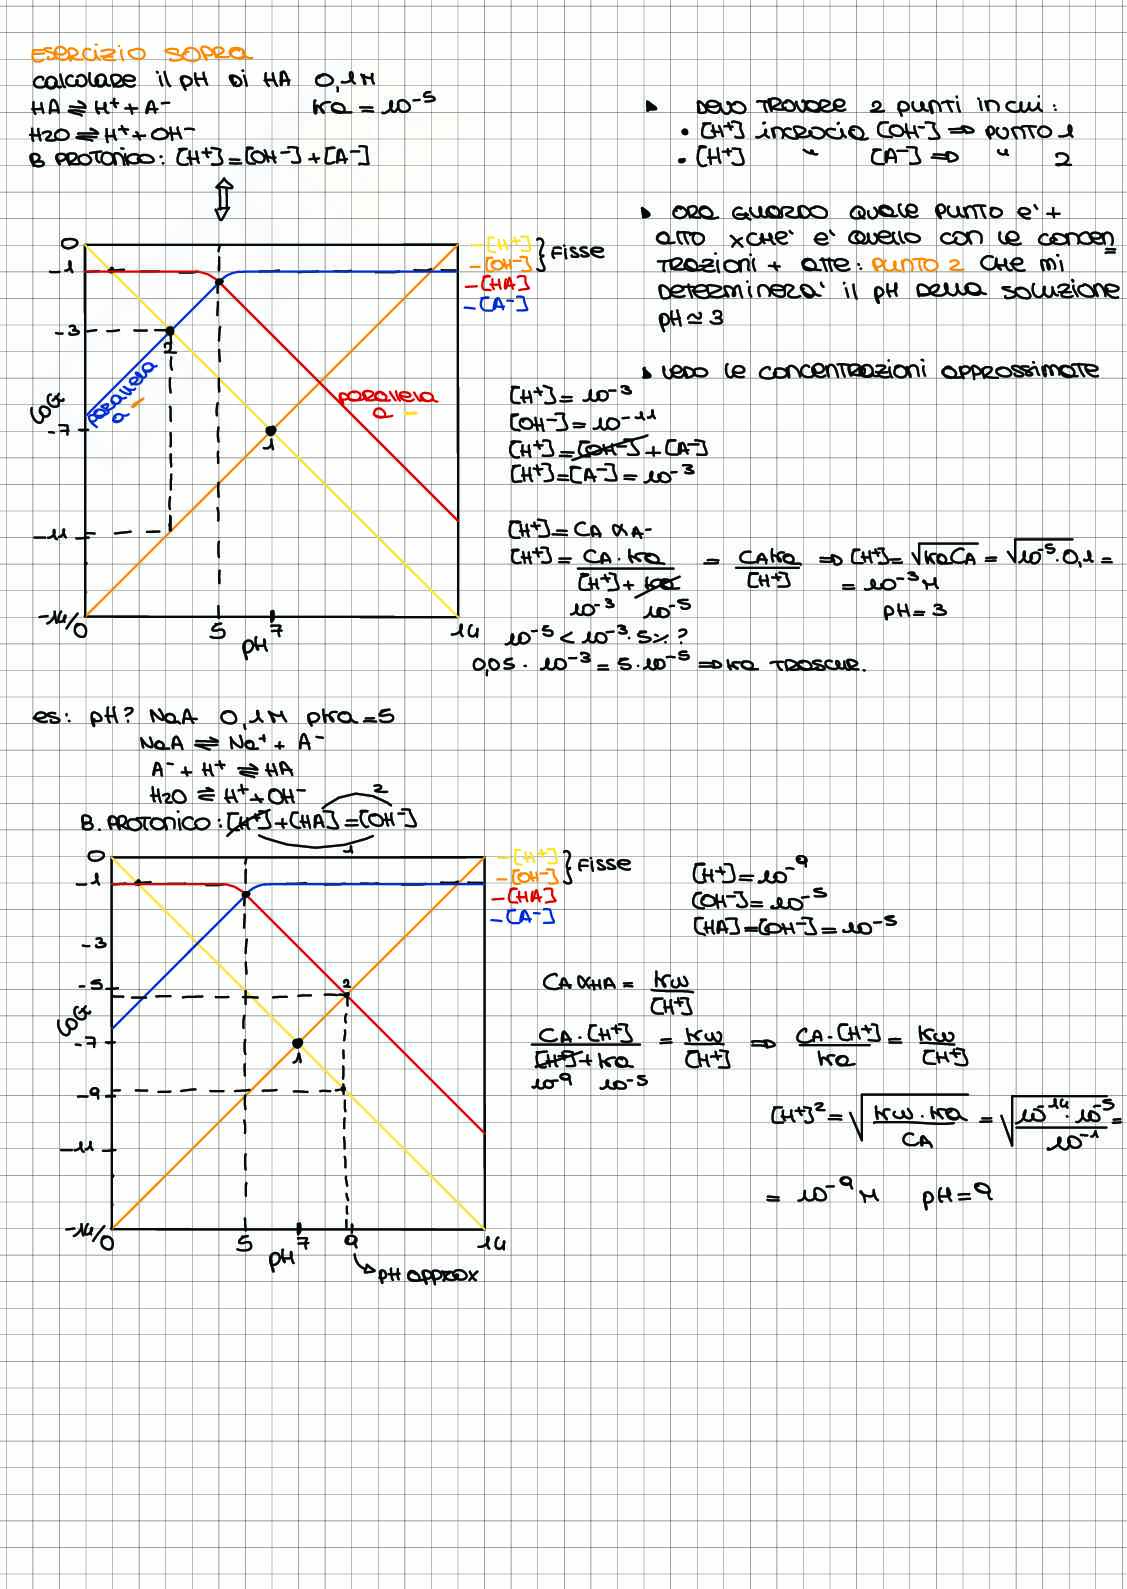 ESERCIZIO SOPRA
calcolare il pH di HA 0,1M
HA ⇌ H⁺ + A⁻ Ka = 10⁻⁵
H2O ⇌ H⁺ + OH⁻
B PROTONICO: [H⁺]=[OH⁻]+[A⁻]
▸ DEVO TROVARE 2 punti in cui:
• [H⁺] incrocia [OH⁻] ⇒ PUNTO 1
• [H⁺] " [A⁻] ⇒ " 2
▸ ORA GUARDO QUALE PUNTO E' +
ALTO XCHE' E' QUELLO CON LE CONCEN=
TRAZIONI + ALTE: PUNTO 2 CHE MI
DETERMINERA' il pH DELLA SOLUZIONE
pH ≃ 3
▸ VEDO LE CONCENTRAZIONI APPROSSIMATE
0
-1
-3
-7
-11
-14/0
5
7
14
LogC
pH
parallela
a -
parallela
a -
2
1
-[H⁺]
-[OH⁻] } Fisse
-[HA]
-[A⁻]
[H⁺]= 10⁻³
[OH⁻]= 10⁻¹¹
[H⁺]=[OH⁻]+[A⁻]
[H⁺]=[A⁻]= 10⁻³
[H⁺]= CA αA⁻
[H⁺]= CA·Ka / [H⁺]+Ka = CAKa / [H⁺] ⇒ [H⁺]= √KaCA = √10⁻⁵·0,1 =
10⁻³ 10⁻⁵
= 10⁻³ M
pH=3
10⁻⁵ < 10⁻³·5% ?
0,05 · 10⁻³ = 5·10⁻⁵ ⇒ Ka TRASCUR.
es: pH? NaA 0,1M pKa=5
NaA ⇌ Na⁺ + A⁻
A⁻ + H⁺ ⇌ HA
H2O ⇌ H⁺+OH⁻
2
B. PROTONICO: [H⁺]+[HA]=[OH⁻]
1
0
-1
-3
-5
-7
-9
-11
-14/0
5
7
9
14
LogC
pH
pH approx
2
1
-[H⁺]
-[OH⁻] } Fisse
-[HA]
-[A⁻]
[H⁺]= 10⁻⁹
[OH⁻]= 10⁻⁵
[HA]=[OH⁻]= 10⁻⁵
CA αHA = Kw / [H⁺]
CA·[H⁺] / [H⁺]+Ka = Kw / [H⁺] ⇒ CA·[H⁺] / Ka = Kw / [H⁺]
10⁻⁹ 10⁻⁵
[H⁺]² = √Kw·Ka / CA = √10⁻¹⁴·10⁻⁵ / 10⁻¹ =
= 10⁻⁹ M pH=9